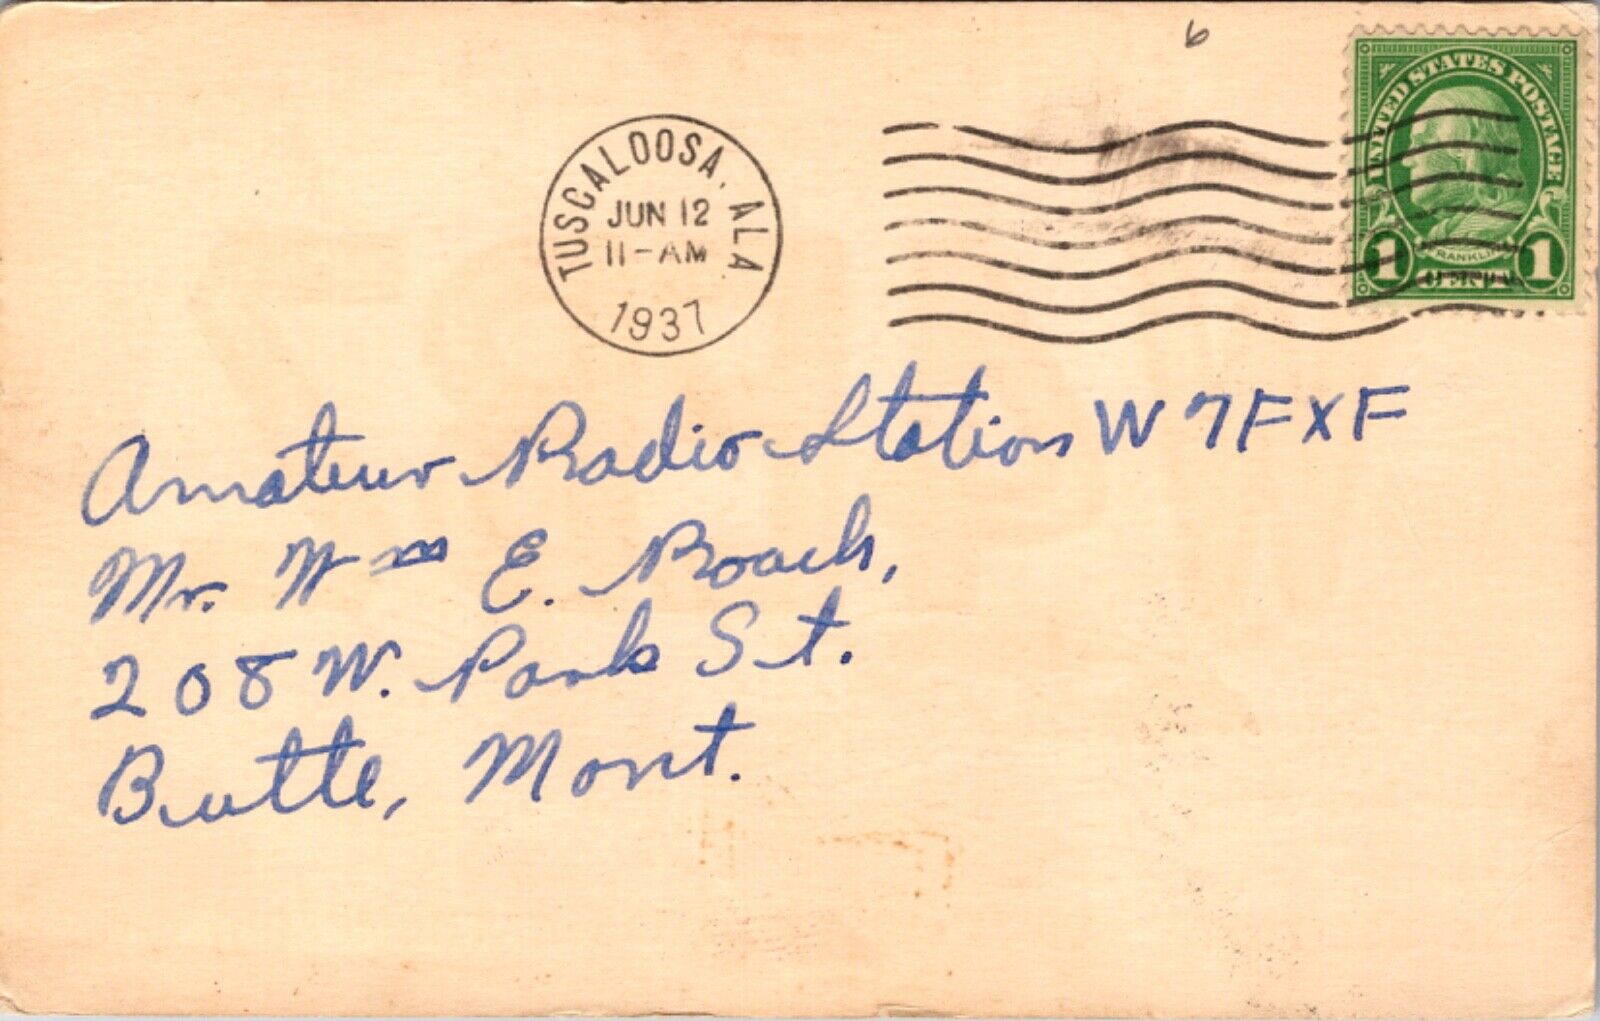 6
UNITED STATES POSTAGE
TUSCALOOSA, ALA.
JUN 12
11-AM
1937
FRANKLIN
1 CENT 1
Amateur Radio Station W7FXF
Mr. Wm E. Roach,
208 W. Park St.
Butte, Mont.